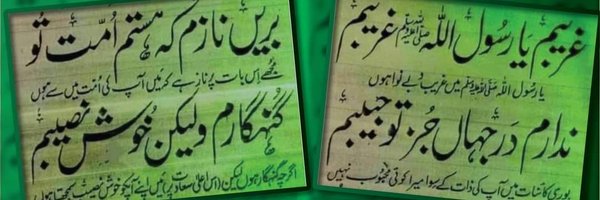 غریبم یا رسُول اللہ ﷺ غریبم
یا رسُول اللہ ﷺ میں غریب و بے نوا ہوں
ندارم در جہاں جُز تو حبیبم
پوری کائنات میں آپ کی ذات کے سوا میرا کوئی محبوب نہیں
بریں نازم کہ ہستم اُمت تو
مجھے اِس بات پر ناز ہے کہ میں آپ کی اُمت میں سے ہوں
گُنہگارم ولیکن خُوش نصیبم
اگرچہ گنہگار ہوں لیکن (اس اعلیٰ سعادت پر) میں اپنے آپ کو خوش نصیب سمجھتا ہوں